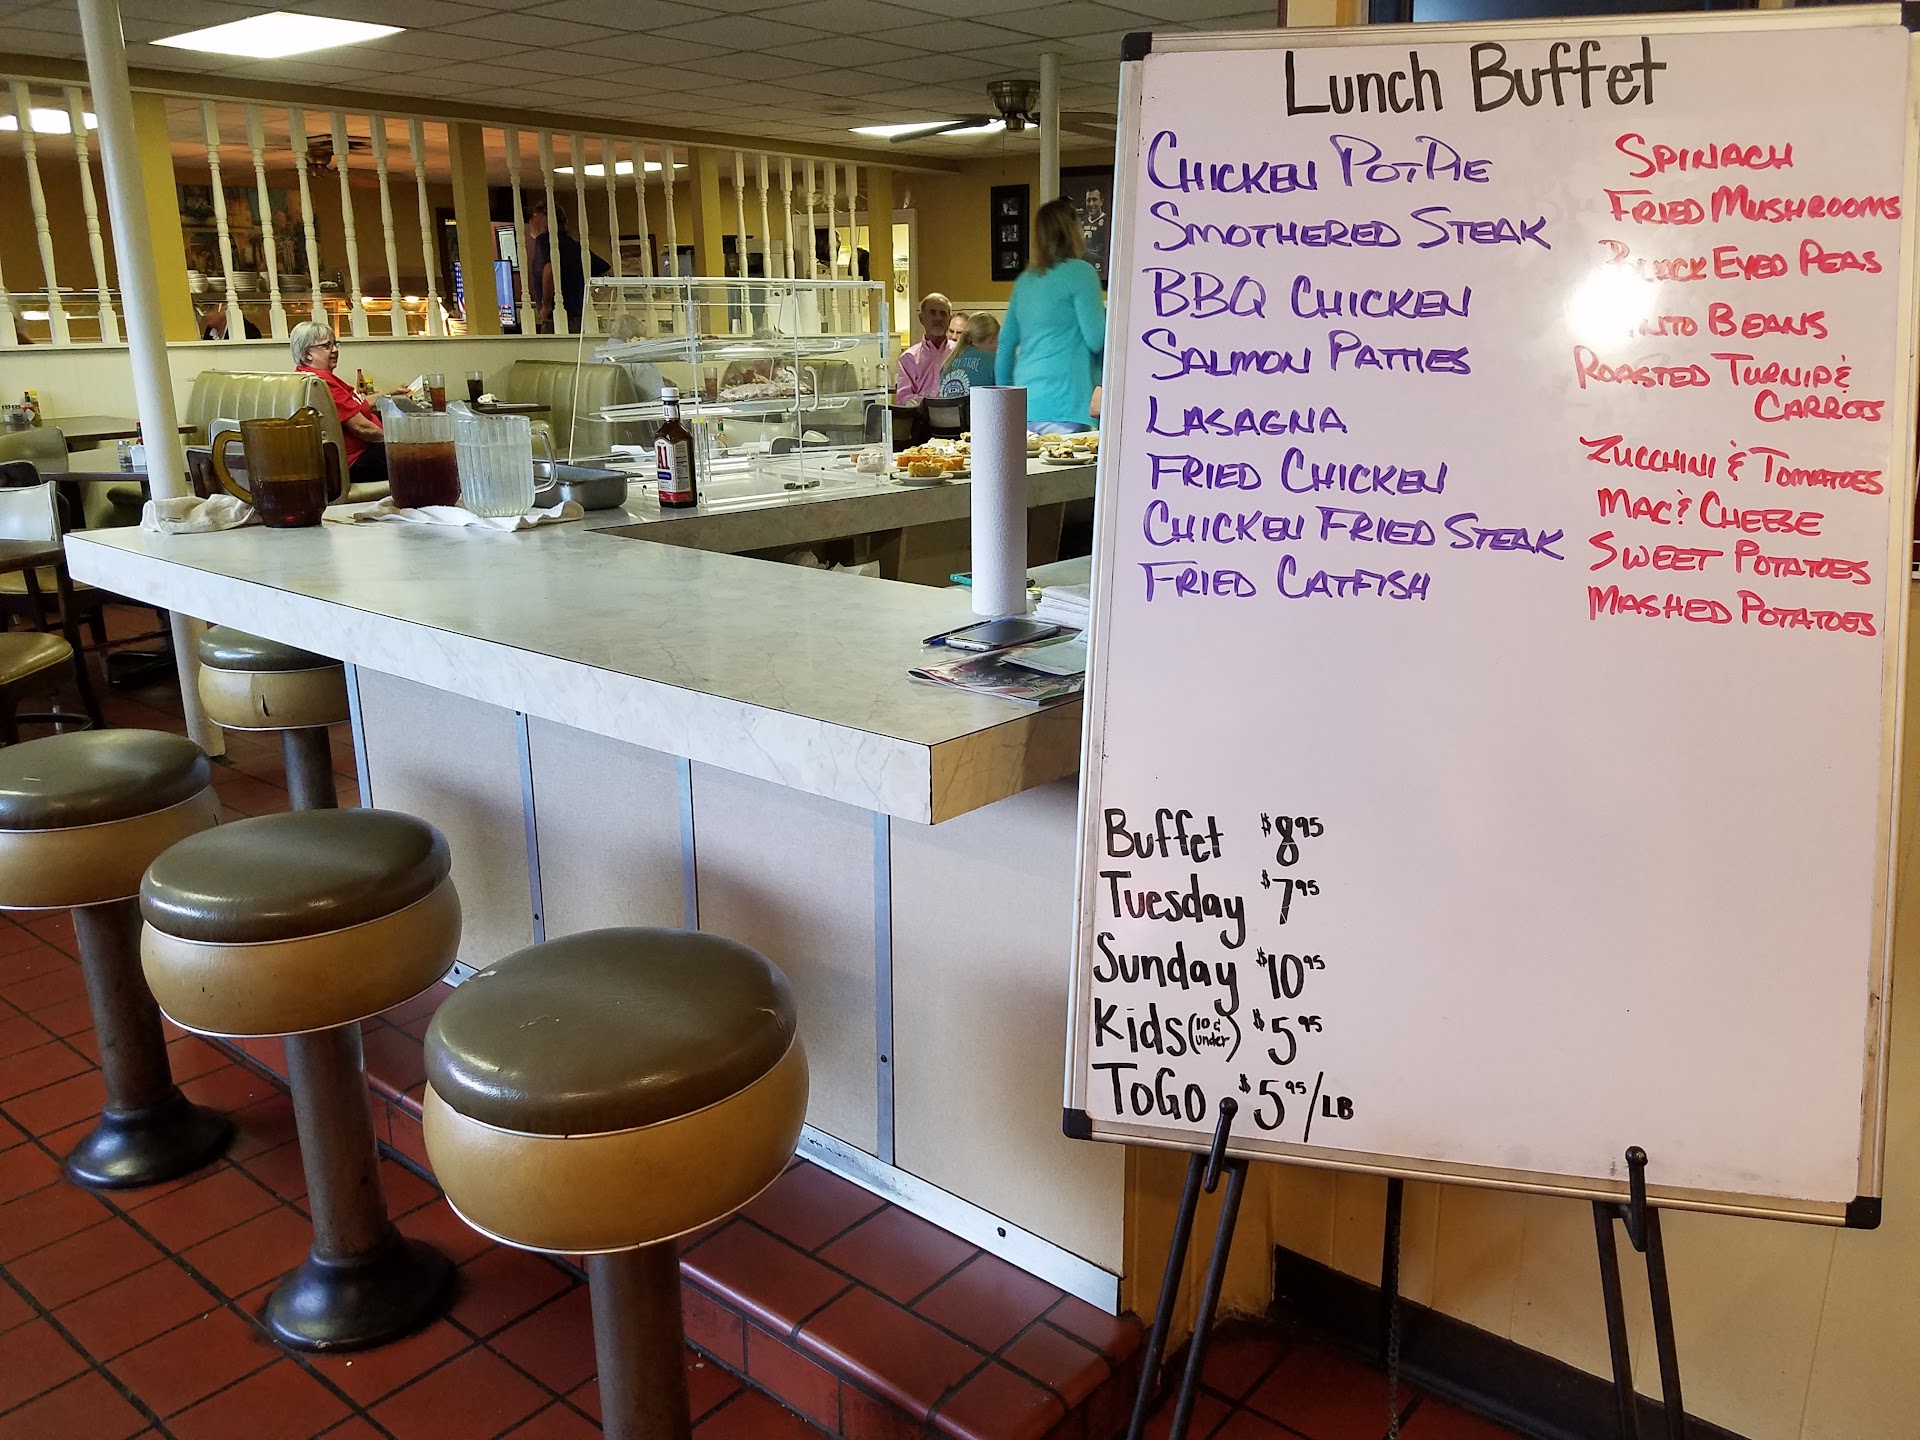 Lunch Buffet
CHICKEN POT PIE
SMOTHERED STEAK
BBQ CHICKEN
SALMON PATTIES
LASAGNA
FRIED CHICKEN
CHICKEN FRIED STEAK
FRIED CATFISH
SPINACH
FRIED MUSHROOMS
BLACK EYED PEAS
PINTO BEANS
ROASTED TURNIP &
CARROTS
ZUCCHINI & TOMATOES
MAC & CHEESE
SWEET POTATOES
MASHED POTATOES
Buffet $8.95
Tuesday $7.95
Sunday $10.95
Kids (10 & under) $5.95
TOGO $5.95/LB
A1
MY TRIBE